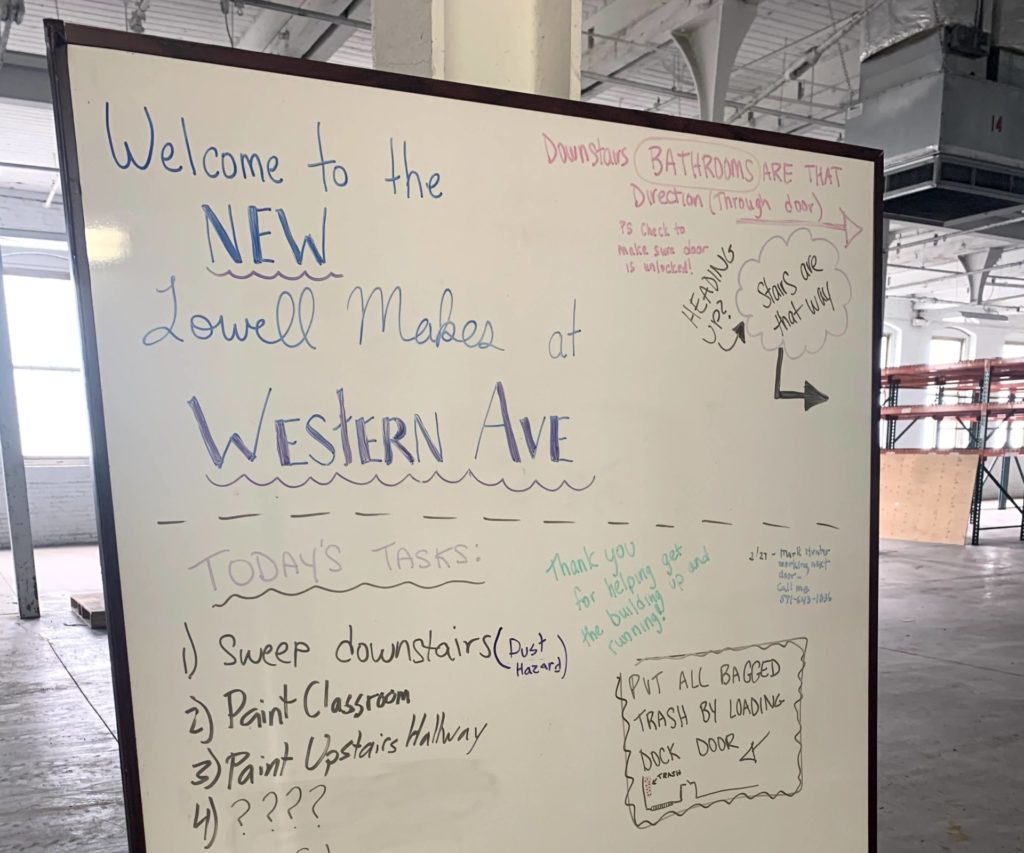 Welcome to the
NEW
Lowell Makes at
WESTERN AVE
Downstairs BATHROOMS ARE THAT
Direction (Through door)
PS Check to
make sure door
is unlocked!
HEADING
UP?
Stairs are
that way
TODAY'S TASKS:
1) Sweep downstairs (Dust
Hazard)
2) Paint Classroom
3) Paint Upstairs Hallway
4) ????
Thank you
for helping get
the building up and
running!
2/27 - Mark
working next
door-
Call me
PUT ALL BAGGED
TRASH BY LOADING
DOCK DOOR
TRASH
14